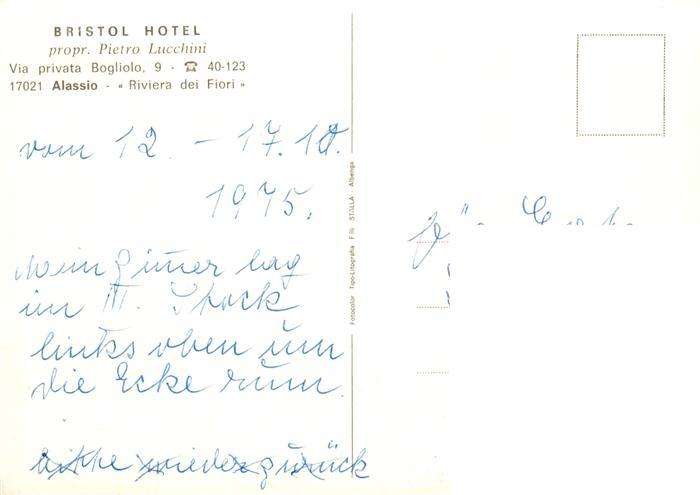 BRISTOL HOTEL
propr. Pietro Lucchini
Via privata Bogliolo, 9 - ☎ 40-123
17021 Alassio - « Riviera dei Fiori »
vom 12. - 17.10.
1975.
Mein Zimer lag
im III. Stock
links oben um
die Ecke rum.
bitte wieder zurück
Fotocolor Tipo-Litografia F.lli STALLA - Albenga